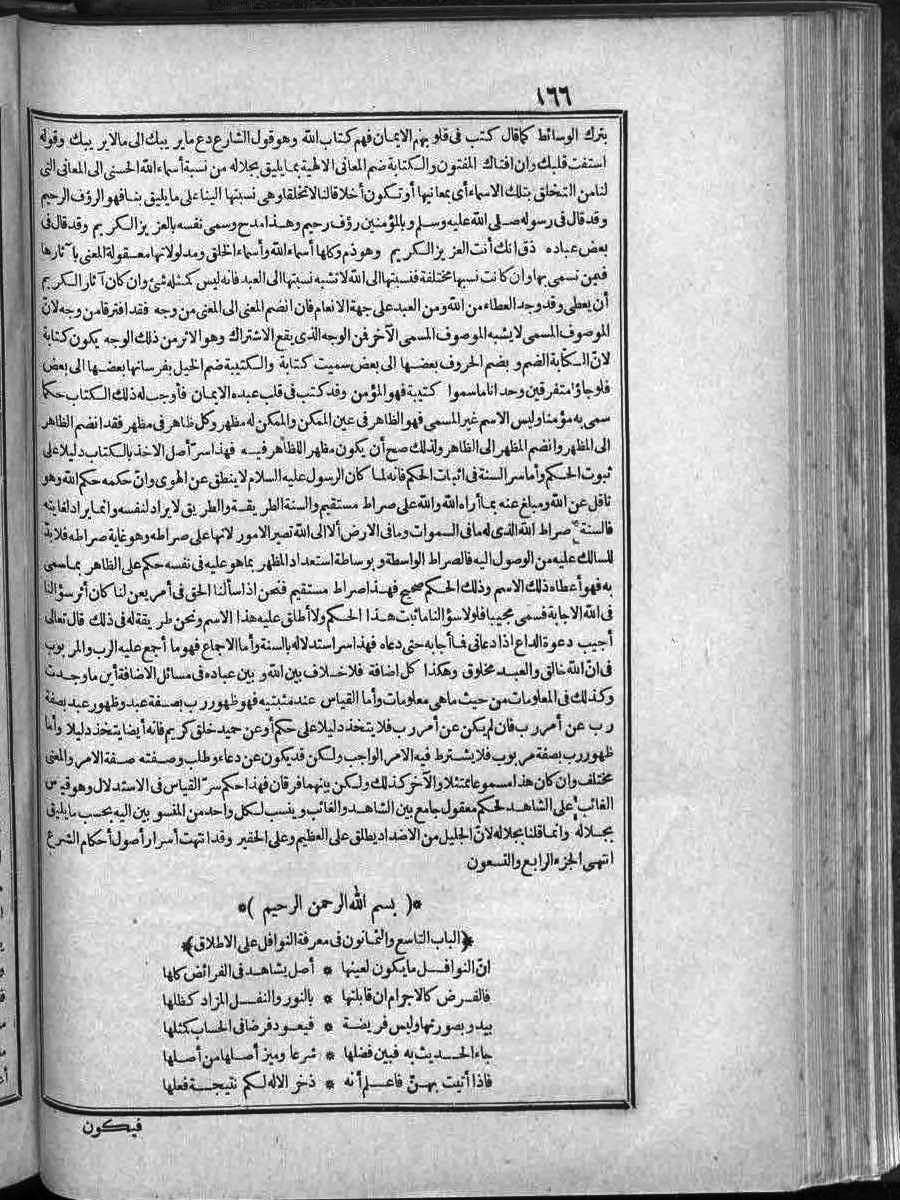 ١٦٦
بترك الوسائط كما قال كتب فى قلوبهم الايمان فهم كتاب الله وهو قول الشارع دع ما يريبك الى مالا يريبك وقوله
استفت قلبك وان افتاك المفتون والكتابة ضم المعانى الالهية بما يليق بجلاله من نسبة أسماء الله الحسنى الى المعانى التى
لنا من التخلق بتلك الاسماء أى بمعانيها أو تكون أخلاقا لنا لا تخلقا وهى نسبتها الينا على ما يليق بنا فهو الرؤف الرحيم
وقد قال فى رسوله صلى الله عليه وسلم وبالمؤمنين رؤف رحيم وهذا مدح وسمى نفسه بالعزيز الكريم وقد قال فى
بعض عباده ذق انك أنت العزيز الكريم وهو ذم وكلها أسماء الله وأسماء الخلق ومدلولاتها معقولة المعنى بآثارها
فيمن تسمى بها وان كانت نسبها مختلفة فنسبتها الى الله لا تشبه نسبتها الى العبد فانه ليس كمثله شئ وان كان آثار الكريم
أن يعطى وقد وجد العطاء من الله ومن العبد على جهة الانعام فان انضم المعنى الى المعنى من وجه فقد افترقا من وجه لان
الموصوف المسمى لا يشبه الموصوف المسمى الآخر فمن الوجه الذى يقع الاشتراك وهو الاثر من ذلك الوجه يكون كتابة
لان الكتابة الضم وبضم الحروف بعضها الى بعض سميت كتابة والكتيبة ضم الخيل بفرسانها بعضها الى بعض
فلو جاؤا متفرقين وحدانا ما سموا كتيبة فهو المؤمن وقد كتب فى قلب عبده الايمان فأوجب له ذلك الكتاب حكما
سمى به مؤمنا وليس الاسم غير المسمى فهو الظاهر فى عين الممكن والممكن له مظهر وكل ظاهر فى مظهر فقد انضم الظاهر
الى المظهر وانضم المظهر الى الظاهر ولذلك صح أن يكون مظهرا للظاهر فيه فهذا سر أصل الاخذ بالكتاب دليلا على
ثبوت الحكم وأما سر السنة فى اثبات الحكم فانه لما كان الرسول عليه السلام لا ينطق عن الهوى وان حكمه حكم الله وهو
ناقل عن الله ومبلغ عنه بما أراه الله والله على صراط مستقيم والسنة الطريقة والطريق لا يراد لنفسه وانما يراد لغايته
فالسنة صراط الله الذى له ما فى السموات وما فى الارض ألا الى الله تصير الامور لانها على صراطه وهو غاية صراطه فلا بد
للسالك عليه من الوصول اليه فالصراط الواسطة وبوساطة استعداد المظهر بما هو عليه فى نفسه حكم على الظاهر بما سمى
به فهو أعطاه ذلك الاسم وذلك الحكم صحيح فهذا صراط مستقيم فنحن اذا سألنا الحق فى أمر يعن لنا كان أثر سؤالنا
فى الله الاجابة فسمى مجيبا فلولا سؤالنا ما ثبت هذا الحكم ولا أطلق عليه هذا الاسم ونحن طريقة له فى ذلك قال تعالى
أجيب دعوة الداع اذا دعانى فما أجابه حتى دعاه فهذا سر استدلاله بالسنة وأما الاجماع فهو ما أجمع عليه الرب والمربوب
فى ان الله خالق والعبد مخلوق وهكذا كل اضافة فلا خلاف بين الله وبين عباده فى مسائل الاضافة أين ما وجدت
وكذلك فى المعلومات من حيث ما هى معلومات وأما القياس عند مثبتيه فهو ظهور رب بصفة عبد وظهور عبد بصفة
رب عن أمر رب فان لم يكن عن أمر رب فلا يتخذ دليلا على حكم أو عن حميد خلق كريم فانه أيضا يتخذ دليلا وأما
ظهور رب بصفة مربوب فلا يشترط فيه الامر الواجب ولكن قد يكون عن دعاء وطلب وصفته صفة الامر والمعنى
مختلف وان كان هذا مسموعا ممتثلا والآخر كذلك ولكن بينهما فرقان فهذا حكم سر القياس فى الاستدلال وهو قياس
الغائب على الشاهد لحكم معقول جامع بين الشاهد والغائب وينسب لكل واحد من المنسوبين اليه بحسب ما يليق
بجلاله وانما قلنا بجلاله لان الجليل من الاضداد يطلق على العظيم وعلى الحقير وقد انتهت أسرار أصول أحكام الشرع
انتهى الجزء الرابع والتسعون
*( بسم الله الرحمن الرحيم )*
﴿الباب التاسع والثمانون فى معرفة النوافل على الاطلاق﴾
ان النوافل ما يكون لعينها * أصل يشاهد فى الفرائض كلها
فالفرض كالاجرام ان قابلتها * بالنور والنفل المزاد كظلها
يبدو بصورتها وليس فريضة * فيعود فرضا فى الحساب كمثلها
جاء الحديث به فبين فضلها * شرعا وميز أصلها من أصلها
فاذا أتيت بهن فاعلم أنه * ذخر الاله لكم نتيجة فعلها
فيكون